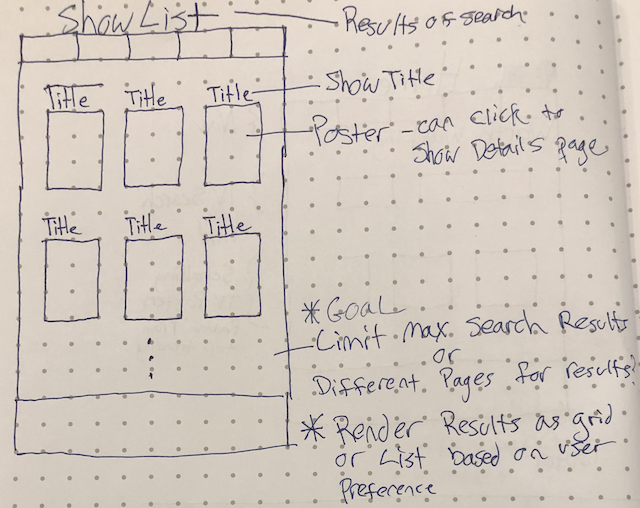 Show List
Results of search
Title Title Title
Show Title
Poster - can click to
Show Details page
Title Title Title
* GOAL
Limit max search Results
or
Different Pages for results?
* Render Results as grid
or List based on user
Preference